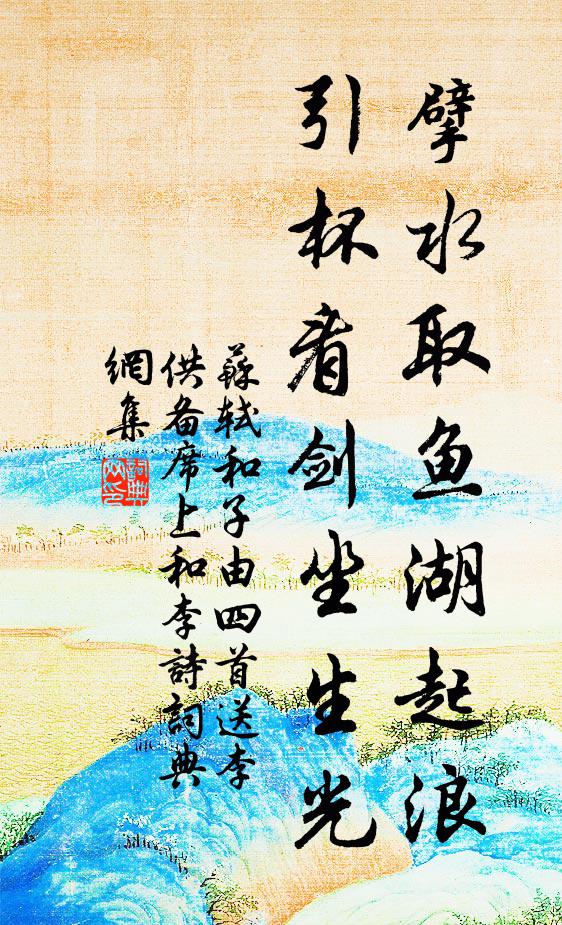 擘水取鱼湖起浪
引杯看剑坐生光
蘇轼和子由四首送李
供备席上和李詩詞典
網集
詞典